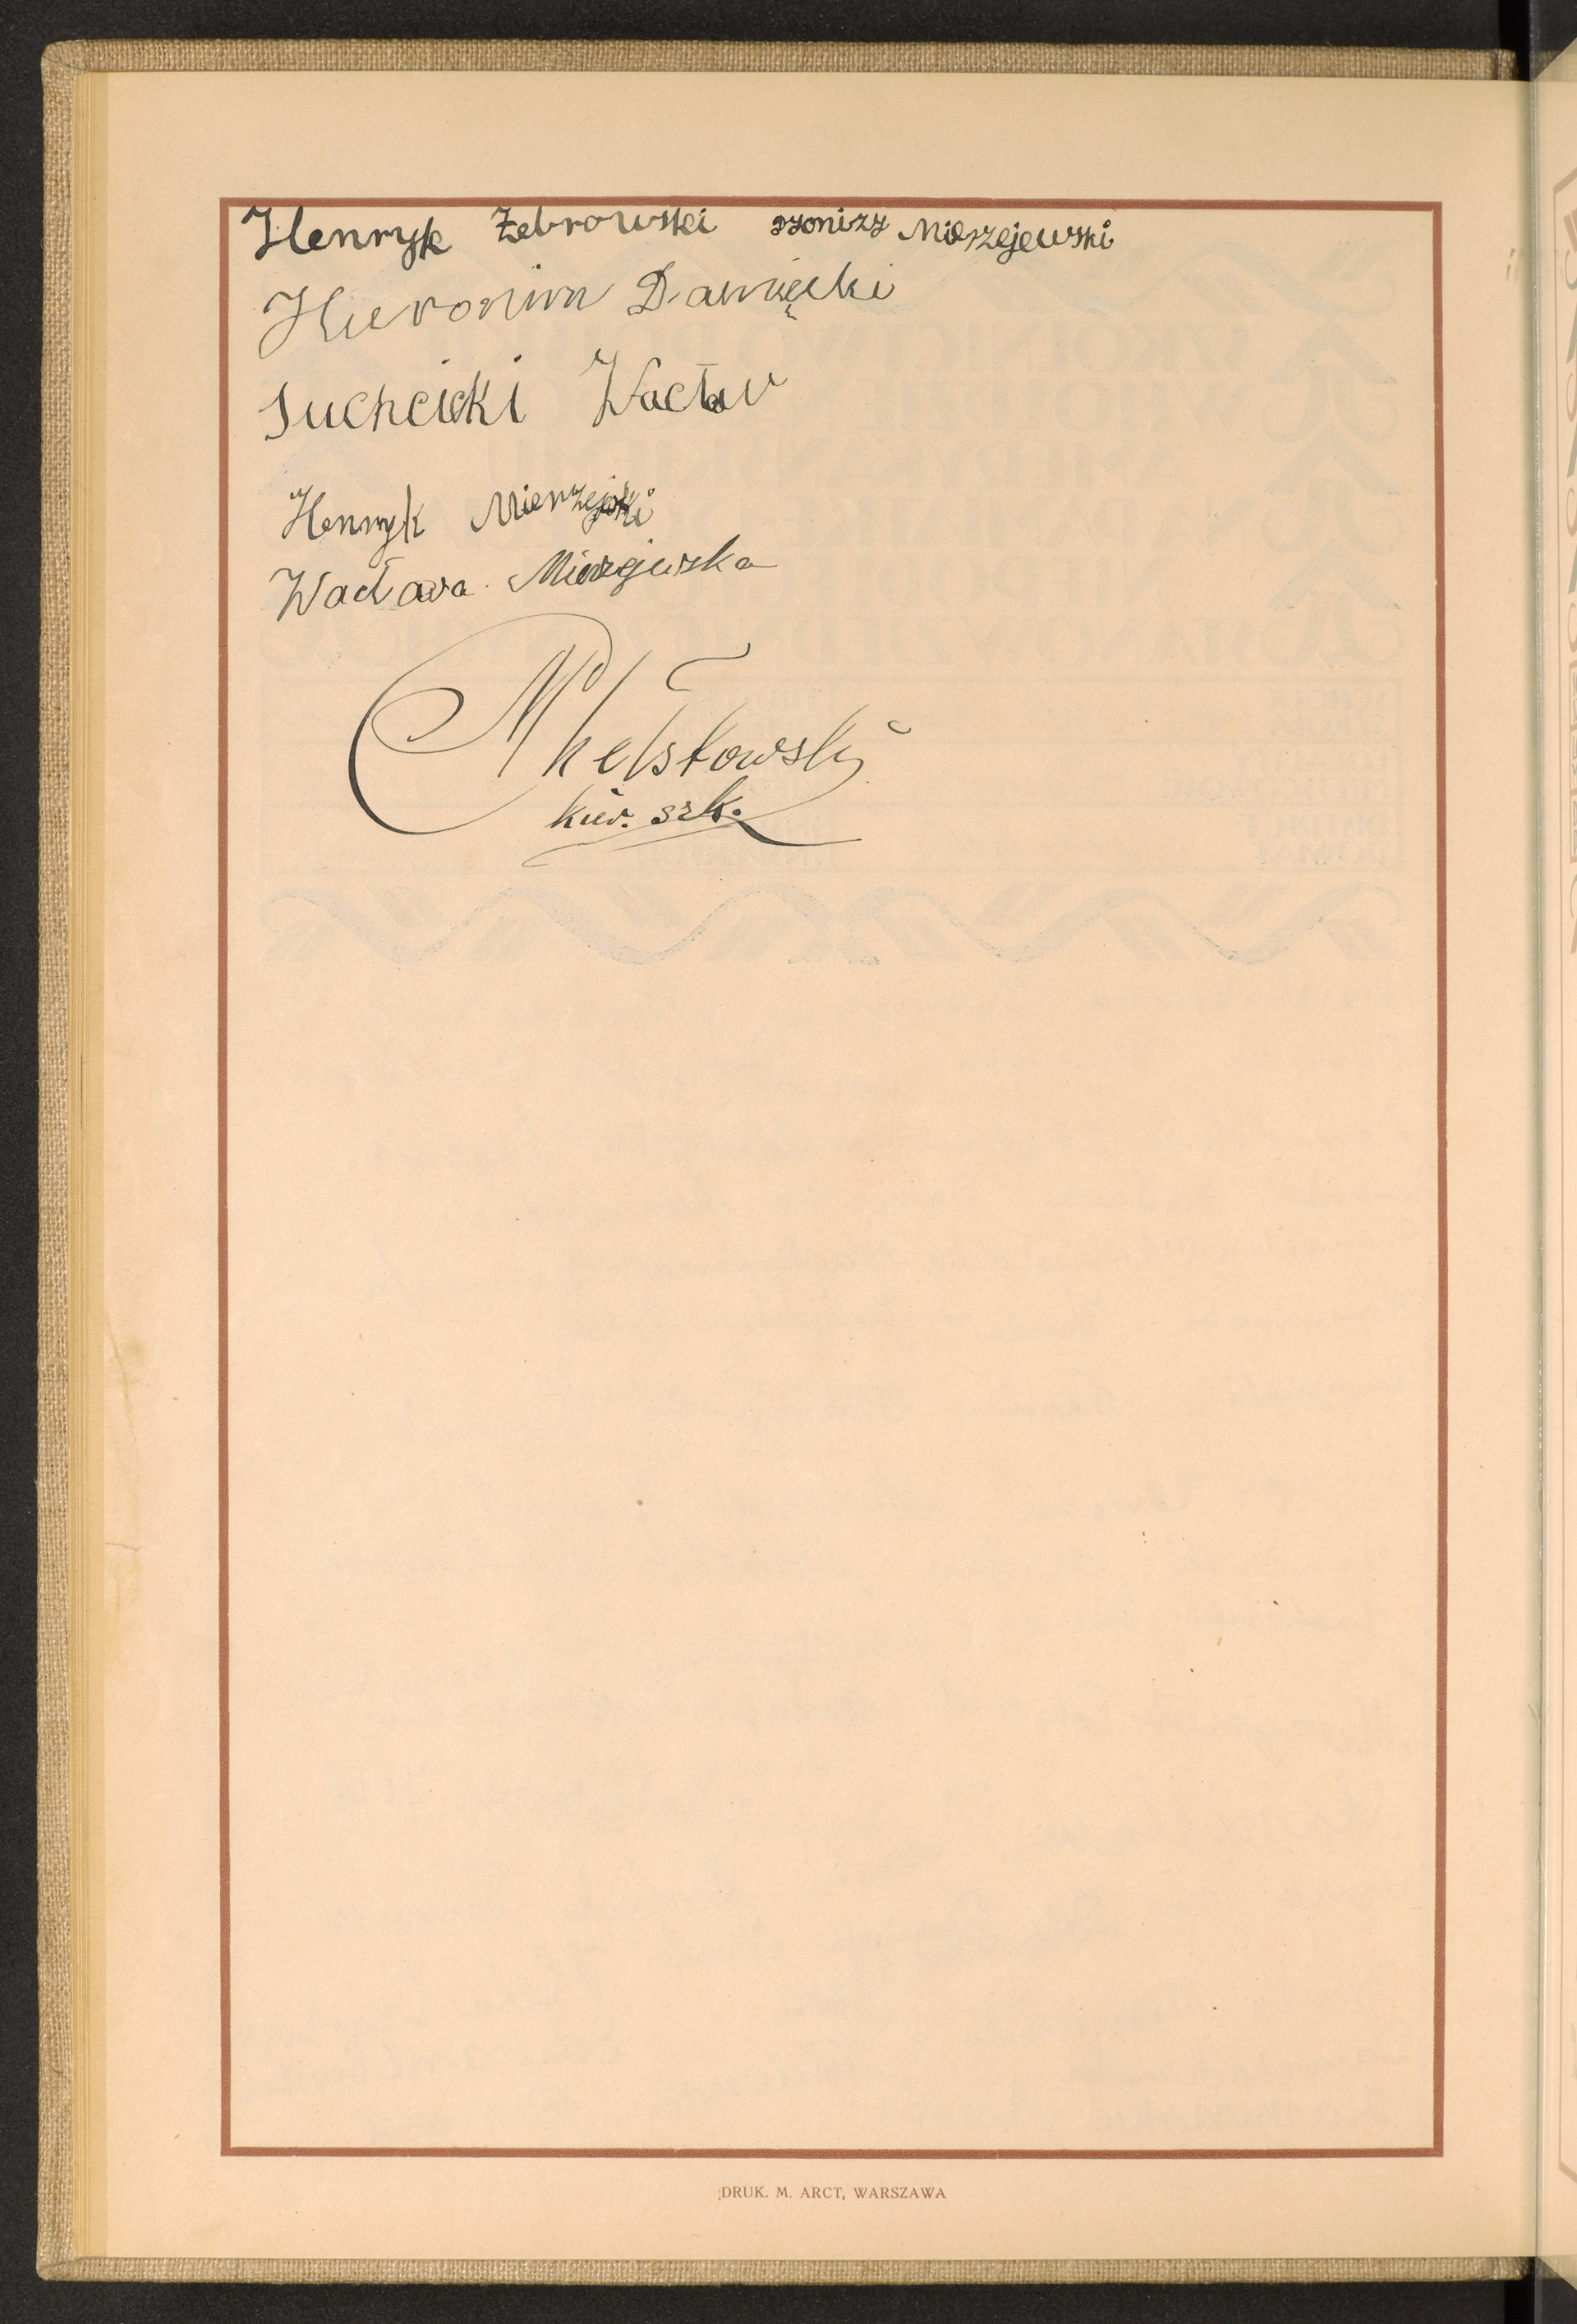 Henryk Żebrowski Dyonizy Mierzejewski
Hieronim Damięcki
Suchcicki Wacław
Henryk Mierzejski
Wacława Mierzejewska
kier. szk.
DRUK. M. ARCT, WARSZAWA